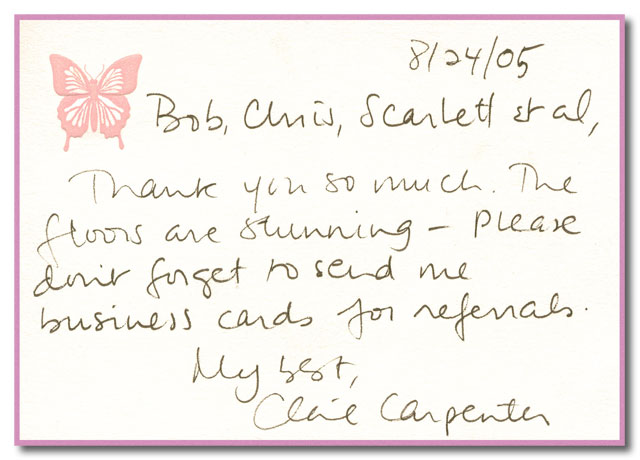 8/24/05
Bob, Chris, Scarlett et al,
Thank you so much. The
floors are stunning – Please
don't forget to send me
business cards for referrals.
My best,
Claire Carpenter